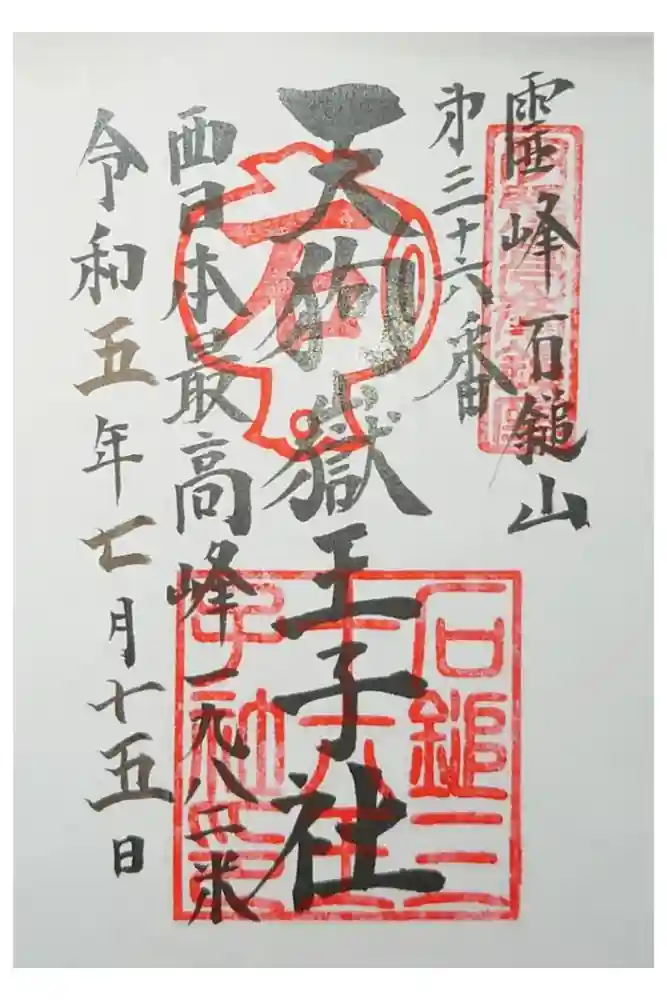 霊峰石鎚山
㐧三十六番
天狗嶽王子社
西日本最高峰一九八二米
令和五年七月十五日
石鎚三
十六王
子社印